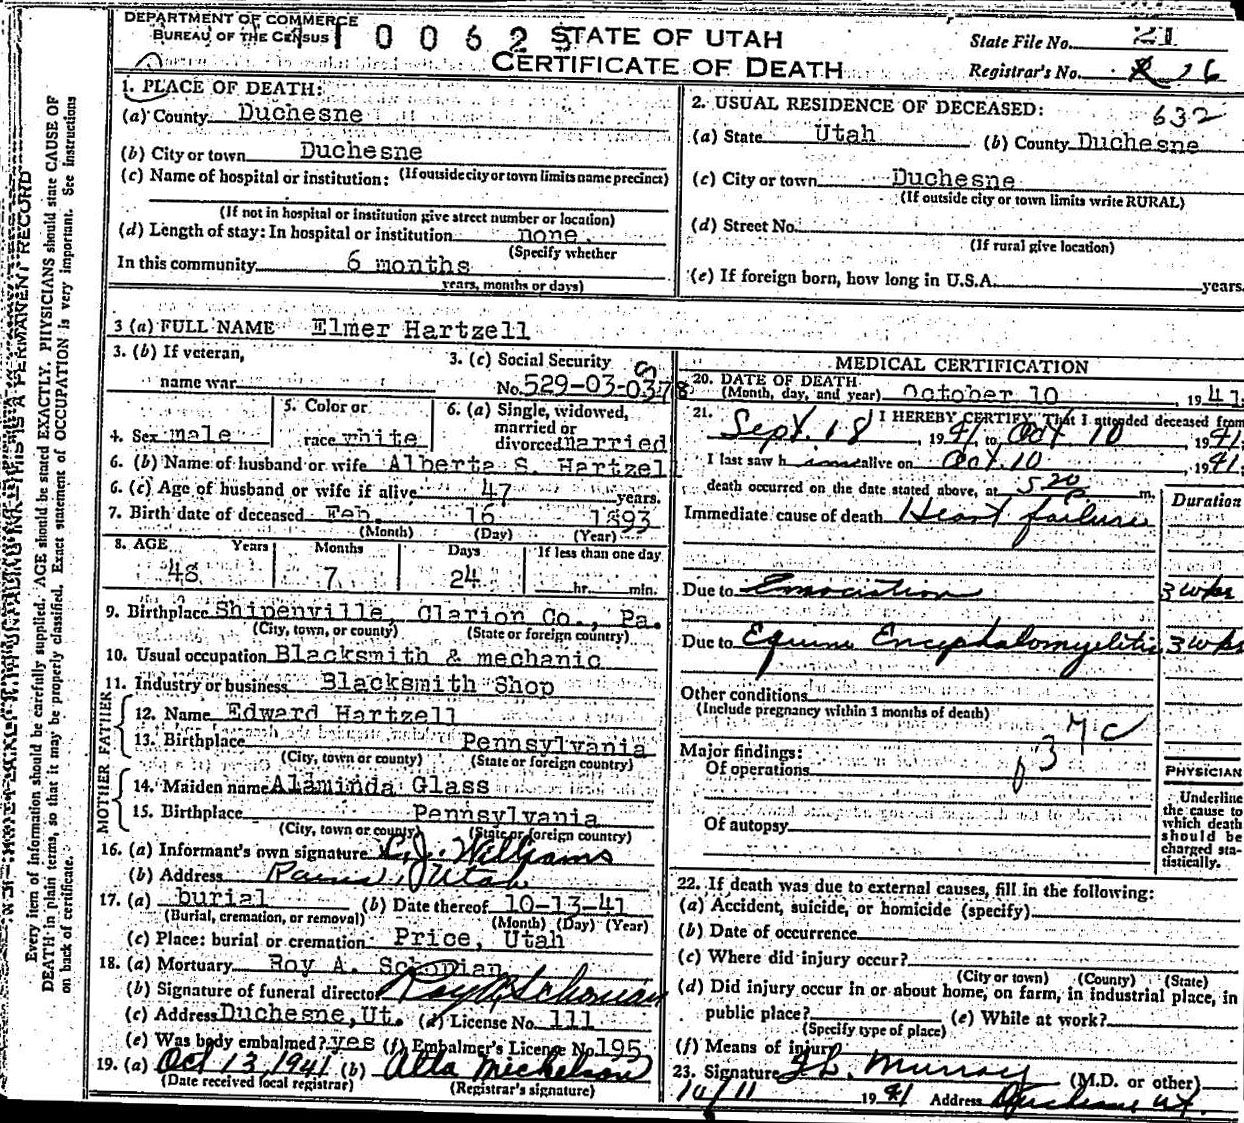 DEPARTMENT OF COMMERCE
BUREAU OF THE CENSUS
0 0 6 2
STATE OF UTAH
CERTIFICATE OF DEATH
State File No. 21
Registrar's No. 16
1. PLACE OF DEATH:
(a) County Duchesne
(b) City or town Duchesne
(c) Name of hospital or institution: (If outside city or town limits name precinct)
(If not in hospital or institution give street number or location)
(d) Length of stay: In hospital or institution none
(Specify whether
In this community 6 months
years, months or days)
2. USUAL RESIDENCE OF DECEASED: 632
(a) State Utah (b) County Duchesne
(c) City or town Duchesne
(If outside city or town limits write RURAL)
(d) Street No.
(If rural give location)
(e) If foreign born, how long in U.S.A. years.
3 (a) FULL NAME Elmer Hartzell
3. (b) If veteran,
name war
3. (c) Social Security
No. 529-03-0378
4. Sex male
5. Color or
race white
6. (a) Single, widowed,
married or
divorced married
6. (b) Name of husband or wife Alberta S. Hartzel
6. (c) Age of husband or wife if alive 47 years.
7. Birth date of deceased Feb. 16 1893
(Month) (Day) (Year)
8. AGE Years Months Days If less than one day
48 7 24 hr. min.
9. Birthplace Shipenville, Clarion Co., Pa.
(City, town, or county) (State or foreign country)
10. Usual occupation Blacksmith & mechanic
11. Industry or business Blacksmith Shop
FATHER
12. Name Edward Hartzell
13. Birthplace Pennsylvania
(City, town, or county) (State or foreign country)
MOTHER
14. Maiden name Alaminda Glass
15. Birthplace Pennsylvania
(City, town or county) (State or foreign country)
16. (a) Informant's own signature Williams
(b) Address Utah
17. (a) burial (b) Date thereof 10-13-41
(Burial, cremation, or removal) (Month) (Day) (Year)
(c) Place: burial or cremation Price, Utah
18. (a) Mortuary Roy A. Schonian
(b) Signature of funeral director Roy A Schonian
(c) Address Duchesne, Ut. (d) License No. 111
(e) Was body embalmed? yes (f) Embalmer's License No. 195
19. (a) Oct 13, 1941 (b) Alta Mickelson
(Date received local registrar) (Registrar's signature)
MEDICAL CERTIFICATION
20. DATE OF DEATH
(Month, day, and year) October 10, 1941
21. I HEREBY CERTIFY, That I attended deceased from
Sept. 18, 1941 to Oct 10 1941
I last saw h im alive on Oct. 10, 1941
death occurred on the date stated above, at 5 20 P m.
Duration
Immediate cause of death Heart failure
Due to Emaciation 3 wks
Due to Equine Encephalomyelitis 3 wks
Other conditions
(Include pregnancy within 3 months of death)
Major findings:
Of operations
Of autopsy
PHYSICIAN
Underline
the cause to
which death
should be
charged sta-
tistically.
22. If death was due to external causes, fill in the following:
(a) Accident, suicide, or homicide (specify)
(b) Date of occurrence
(c) Where did injury occur?
(City or town) (County) (State)
(d) Did injury occur in or about home, on farm, in industrial place, in
public place? (e) While at work?
(Specify type of place)
(f) Means of injury
23. Signature Murray (M.D. or other)
10/11 1941 Address Duchesne Ut.
THIS IS A PERMANENT RECORD
Every item of information should be carefully supplied. AGE should be stated EXACTLY. PHYSICIANS should state CAUSE OF
DEATH in plain terms, so that it may be properly classified. Exact statement of OCCUPATION is very important. See instructions
on back of certificate.